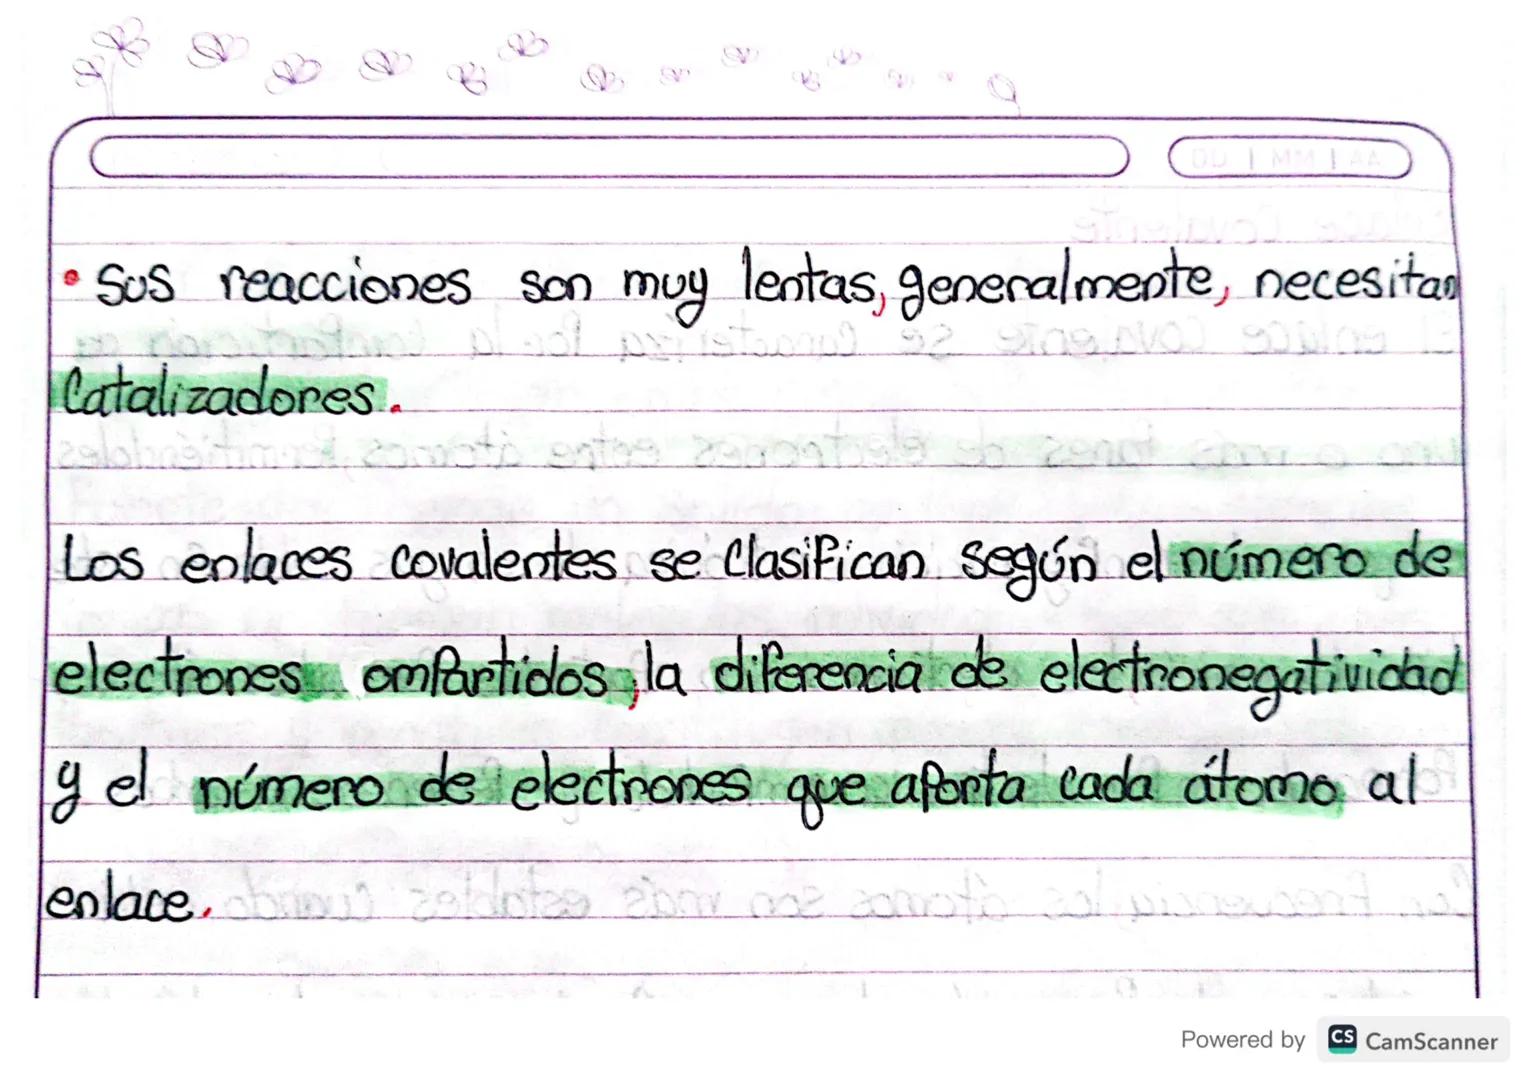 AA | MM | DD
• Sus reacciones son muy lentas, generalmente, necesitan
Catalizadores.
Los enlaces covalentes se Clasifican según el número de
electrones ompartidos, la diferencia de electronegatividad
y el número de electrones que aporta cada átomo al
enlace.
Powered by CS CamScanner